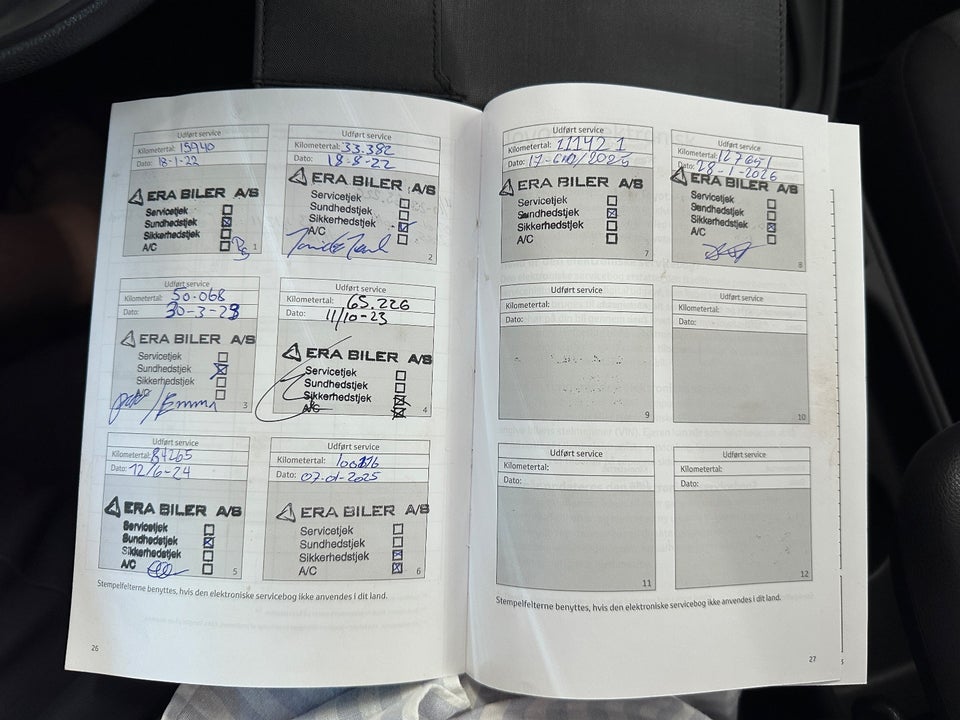 Udført service
Kilometertal: 15940
Dato: 18-1-22
ERA BILER A/S
Servicetjek
Sundhedstjek
Sikkerhedstjek
A/C
1
Udført service
Kilometertal: 33.382
Dato: 18-8-22
ERA BILER A/S
Servicetjek
Sundhedstjek
Sikkerhedstjek
A/C
2
Udført service
Kilometertal: 50.068
Dato: 30-3-23
ERA BILER A/S
Servicetjek
Sundhedstjek
Sikkerhedstjek
A/C
Emma
3
Udført service
Kilometertal: 65.226
Dato: 11/10-23
ERA BILER A/S
Servicetjek
Sundhedstjek
Sikkerhedstjek
A/C
4
Udført service
Kilometertal: 84265
Dato: 12/6-24
ERA BILER A/S
Servicetjek
Sundhedstjek
Sikkerhedstjek
A/C
5
Udført service
Kilometertal:
Dato: 07-01-2025
ERA BILER A/S
Servicetjek
Sundhedstjek
Sikkerhedstjek
A/C
6
Stempelfelterne benyttes, hvis den elektroniske servicebog ikke anvendes i dit land.
26
Udført service
Kilometertal: 111421
Dato:
ERA BILER A/S
Servicetjek
Sundhedstjek
Sikkerhedstjek
A/C
7
Udført service
Kilometertal: 127651
Dato: 28-1-2026
ERA BILER A/S
Servicetjek
Sundhedstjek
Sikkerhedstjek
A/C
8
Udført service
Kilometertal:
Dato:
9
Udført service
Kilometertal:
Dato:
10
Udført service
Kilometertal:
Dato:
11
Udført service
Kilometertal:
Dato:
12
Stempelfelterne benyttes, hvis den elektroniske servicebog ikke anvendes i dit land.
27